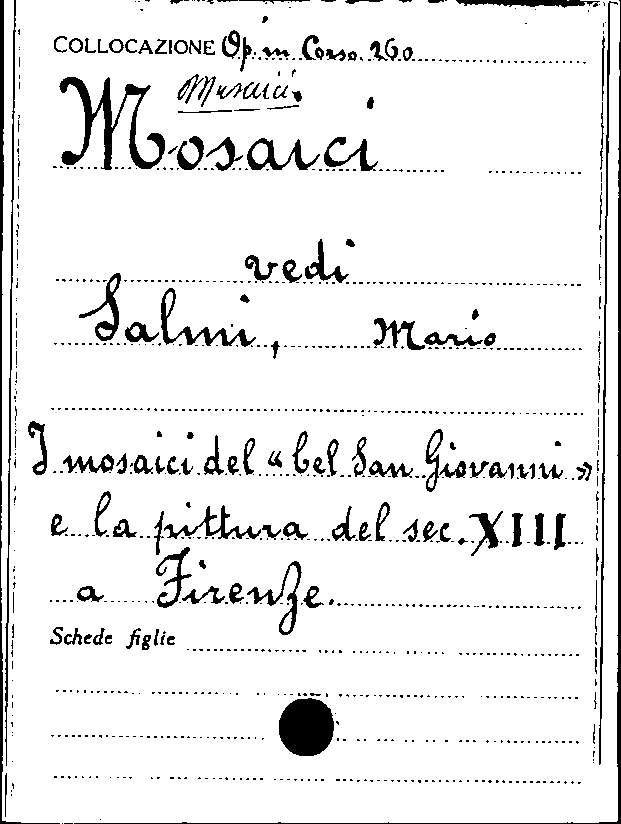 COLLOCAZIONE Op. in Corso. 260
Mosaici.
Mosaici
vedi
Salmi, Mario
I mosaici del « bel San Giovanni »
e la pittura del sec. XIII
a Firenze.
Schede figlie